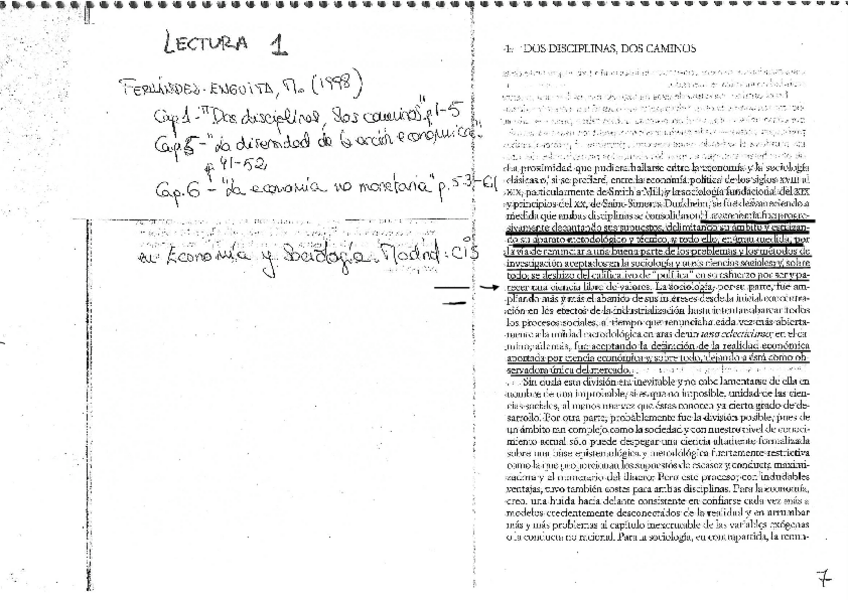 LECTURA 1
FERNÁNDEZ-ENGUITA, M. (1998)
Cap 1 - "Dos disciplinas, dos caminos" p 1-5
Cap 5 - "La diversidad de la acción económica"
p 41-52
Cap. 6 - "La economía no monetaria" p. 53-61
en Economía y Sociología. Madrid: CIS
1. DOS DISCIPLINAS, DOS CAMINOS
la proximidad que pudiera hallarse entre la economía y la sociología
clásicas o, si se prefiere, entre la economía política de los siglos XVIII al
XIX, particularmente de Smith a Mill, y la sociología fundacional del XIX
y principios del XX, de Saint-Simon a Durkheim, se fue desvaneciendo a
medida que ambas disciplinas se consolidaron. La economía fue progre-
sivamente decantando sus supuestos, delimitando su ámbito y
do su aparato metodológico y técnico, y todo ello, en gran medida, por
la vía de renunciar a una buena parte de los problemas y los métodos de
investigación aceptados en la sociología y otras ciencias sociales y, sobre
todo, se deshizo del calificativo de "política" en su esfuerzo por ser y pa-
recer una ciencia libre de valores. La sociología, por su parte, fue am-
pliando más y más el abanico de sus intereses desde la inicial concentra-
ción en los efectos de la industrialización hasta intentar abarcar todos
los procesos sociales, al tiempo que renunciaba cada vez más abierta-
mente a la unidad metodológica en aras de un sano eclecticismo; en el ca-
mino, además, fue aceptando la definición de la realidad económica
aportada por ciencia económica y, sobre todo, dejando a ésta como ob-
servadora única del mercado.
Sin duda esta división era inevitable y no cabe lamentarse de ella en
nombre de una improbable, si es que no imposible, unidad de las cien-
cias sociales, al menos una vez que éstas conocen ya cierto grado de de-
sarrollo. Por otra parte, probablemente fue la división posible, pues de
un ámbito tan complejo como la sociedad y con nuestro nivel de conoci-
miento actual sólo puede despegar una ciencia altamente formalizada
sobre una base epistemológica y metodológica fuertemente restrictiva
como la que proporcionan los supuestos de escasez y conducta maximi-
zadora y el numerario del dinero. Pero este proceso, con indudables
ventajas, tuvo también costes para ambas disciplinas. Para la economía,
creo, una huida hacia delante consistente en confiarse cada vez más a
modelos crecientemente desconectados de la realidad y en arrumbar
más y más problemas al capítulo inescrutable de las variables exógenas
o la conducta no racional. Para la sociología, en contrapartida, la renun-
7